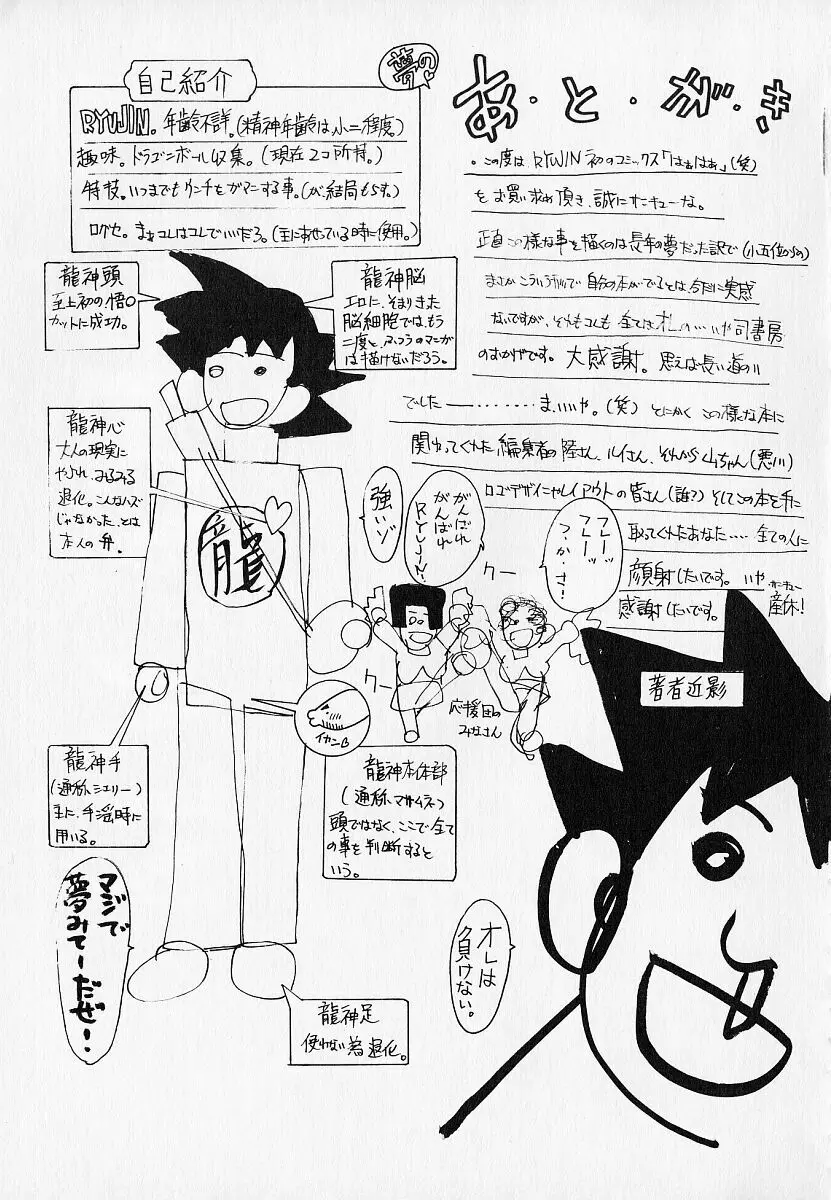 あ・と・が・き
・この度は RYUJIN 初のコミックス「はぁはぁ」(笑)
をお買い求め頂き、誠にサンキューな。
正直この様な事を描くのは長年の夢だった訳で(小五位からの)
まさかこういう形で自分の本がでるとは今だに実感
ないですが、それもコレも全ては オレの……いや司書房
のおかげです。大感謝。思えば長い道のり
でした ―………ま、いいや。(笑) とにかく この様な本に
関わってくれた編集者の陸さん、ルイさん、それから山ちゃん(悪川)
ロゴデザインやレイアウトの皆さん(誰?) そしてこの本を手に
取ってくれたあなた…… 全ての人に
顔射したいです。いや、サンキュー
感謝したいです。 産休!
夢の♡
自己紹介
RYUJIN。年齢不詳。(精神年齢は、小二程度)
趣味。ドラゴンボール収集。(現在2コ所持。)
特技。いつまでもウンチをガマンする事。(が、結局もらす。)
口グセ。まぁコレはコレでいいだろ。(主にあせっている時に使用。)
龍神頭
至上初の悟○
カットに成功。
龍神脳
エロに、そまりきた
脳細胞では、もう
二度と、ふつうのマンガ
は描けないだろう。
龍神心
大人の現実に
やぶれ、みるみる
退化。こんなハズ
じゃなかった、とは
本人の弁。
龍
強いゾ
がんばれ
がんばれ
RYUJIN!
フレーッ
フレーッ
つ・か・さ!
クー
クー
応援団の
みなさん
著者近影
イカンG
龍神手
(通称シェリー)
主に、手淫時に
用いる。
龍神本体部
(通称、マサムネっ)
頭ではなく、ここで全て
の事を判断すると
いう。
マジで
夢みてーだぜ!
龍神足
使わない為退化。
オレは
負けない。